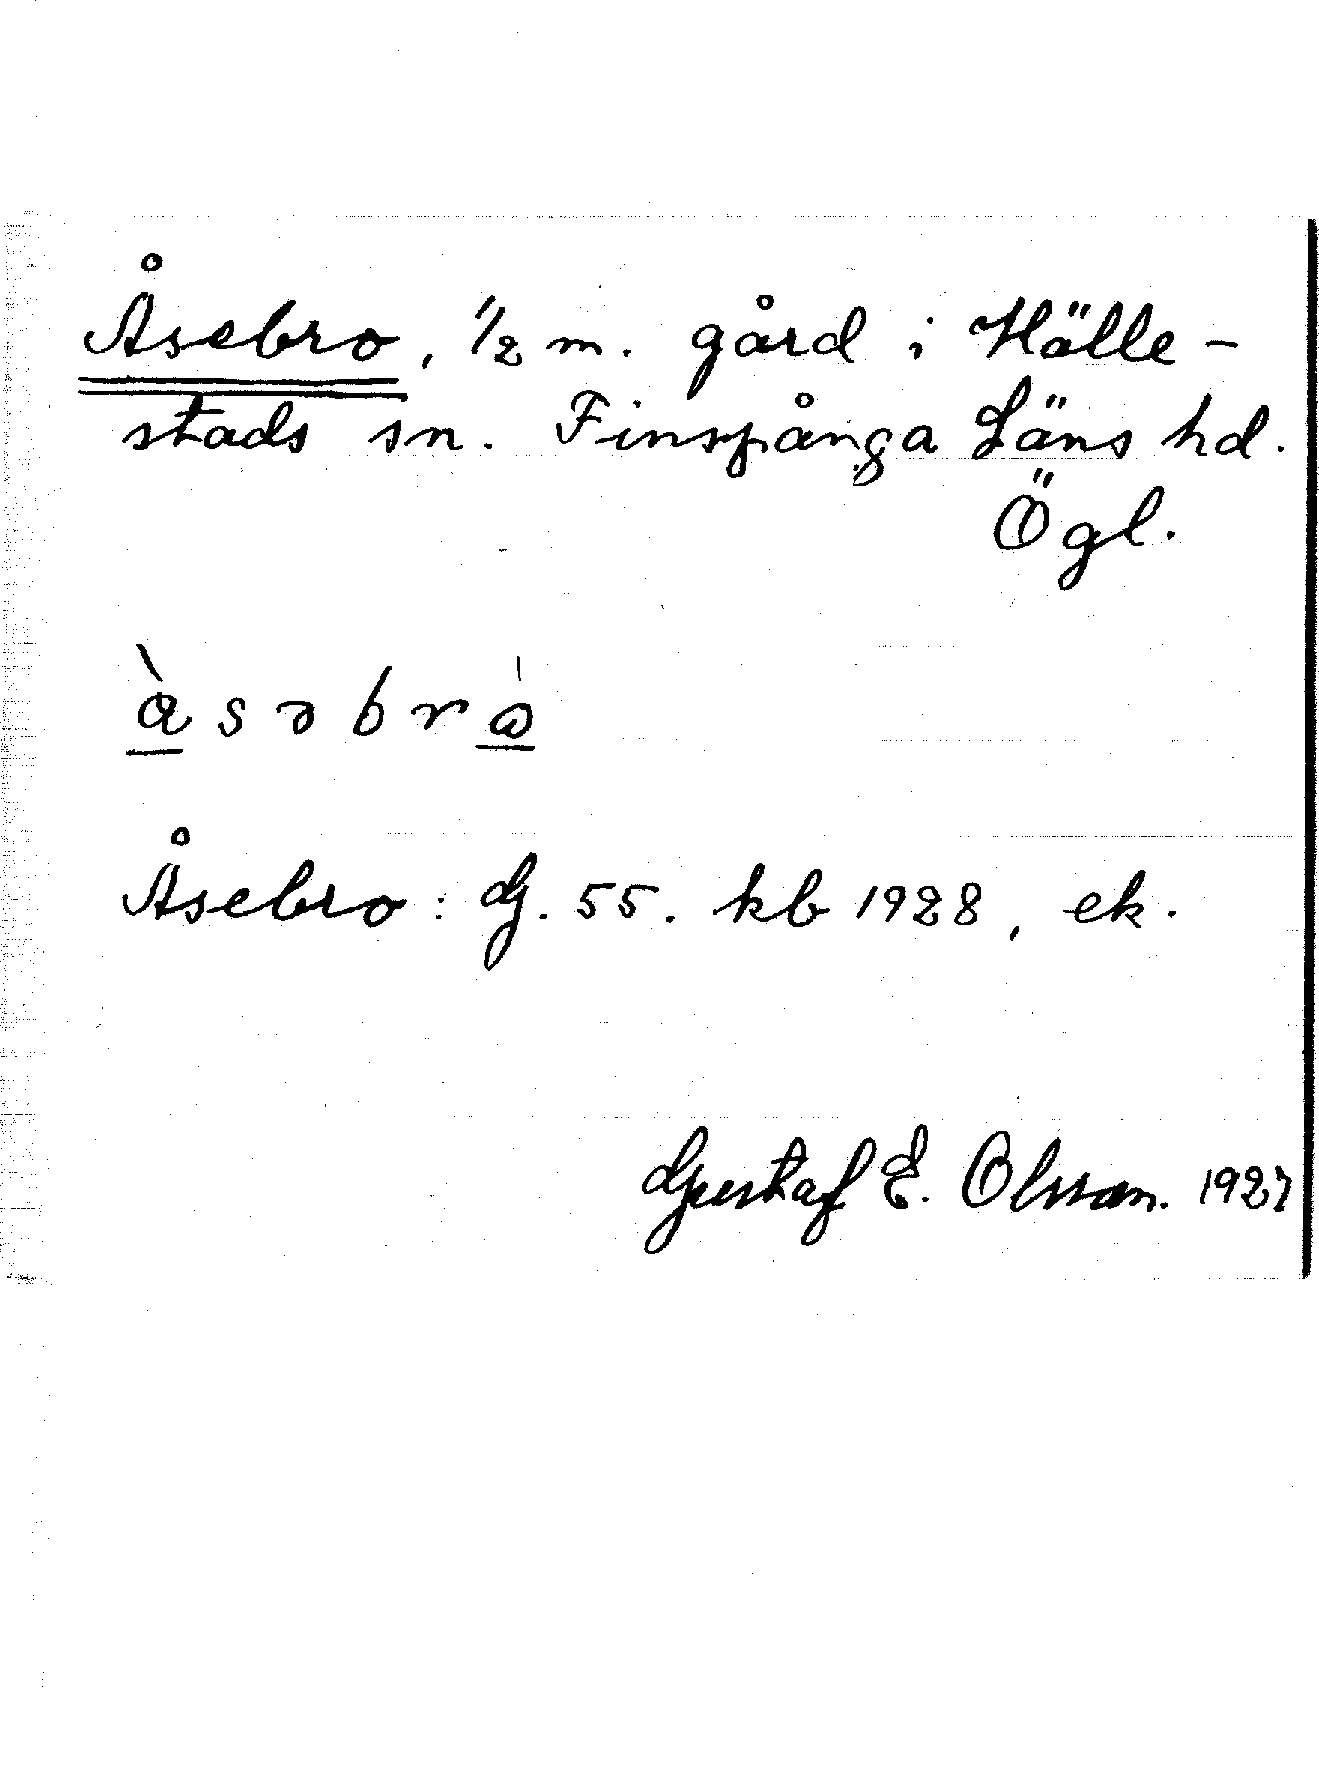 Åsebro, 1/2 m. gård i Hälle-
stads sn. Finspånga Läns hd.
Ögl.
àsəbrò
Åsebro: G. 55. kb 1928, ek.
Gustaf E. Olsson. 1927